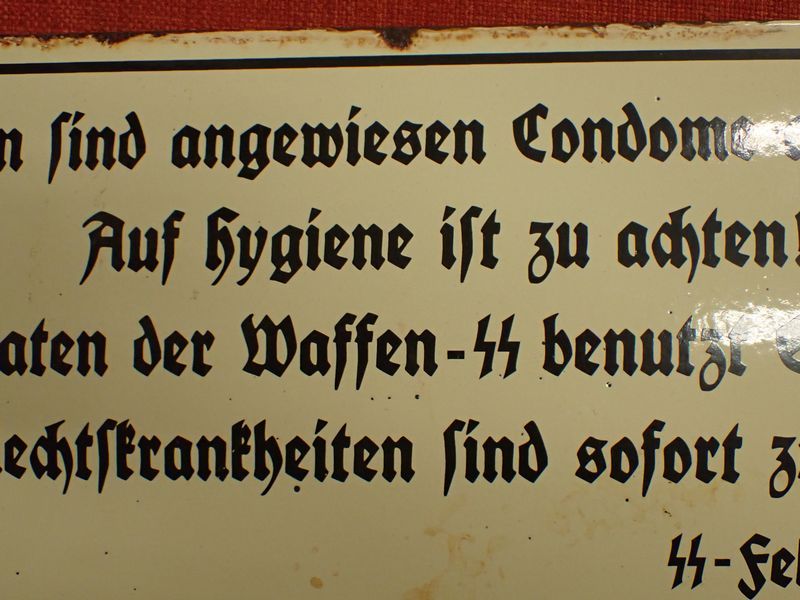 n sind angewiesen Condome
Auf Hygiene ist zu achten!
aten der Waffen-SS benutzt
echtskrankheiten sind sofort
SS-Fel